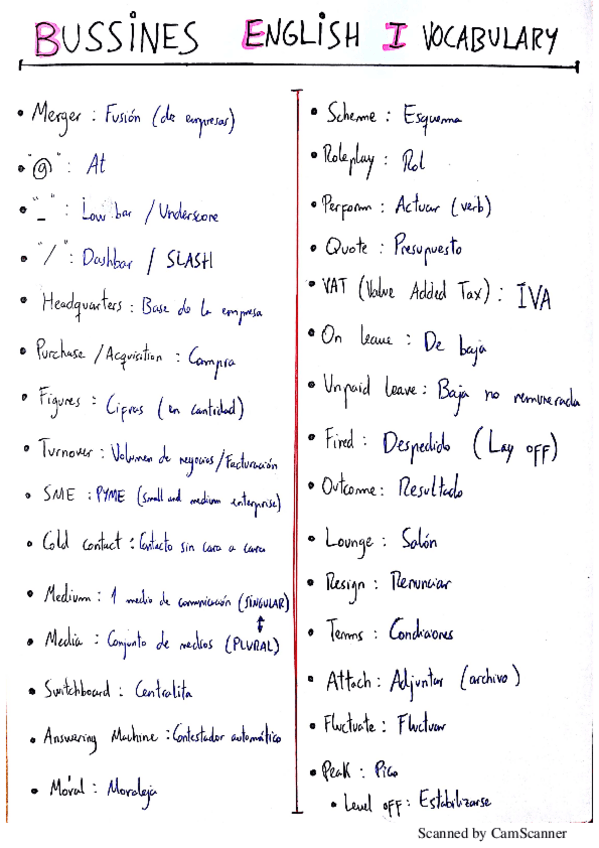 BUSSINES ENGLISH I VOCABULARY
• Merger : Fusión (de empresas)
• "@" : At
• "_" : Low bar / Underscore
• "/" : Dashbar / SLASH
• Headquarters : Base de la empresa
• Purchase / Acquisition : Compra
• Figures : Cifras (en cantidad)
• Turnover : Volumen de negocios / Facturación
• SME : PYME (small and medium enterprise)
• Cold contact : Contacto sin cara a cara
• Medium : 1 medio de comunicación (SINGULAR)
↕
• Media : Conjunto de medios (PLURAL)
• Switchboard : Centralita
• Answering Machine : Contestador automático
• Moral : Moraleja
• Scheme : Esquema
• Roleplay : Rol
• Perform : Actuar (verb)
• Quote : Presupuesto
• VAT (Value Added Tax) : IVA
• On leave : De baja
• Unpaid leave : Baja no remunerada
• Fired : Despedido (Lay off)
• Outcome : Resultado
• Lounge : Salón
• Resign : Renunciar
• Terms : Condiciones
• Attach : Adjuntar (archivo)
• Fluctuate : Fluctuar
• Peak : Pico
• Level off : Estabilizarse
Scanned by CamScanner